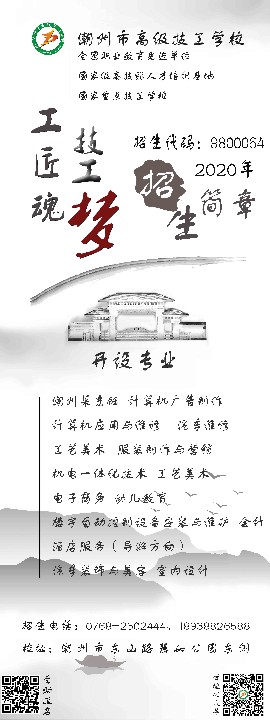 潮州市高级技工学校
全国职业教育先进单位
国家级高技能人才培训基地
国家重点技工学校
工匠魂
技工梦
招生代码：8800064
2020年
招生简章
开设专业
潮州菜烹饪 计算机广告制作
计算机应用与维修 汽车维修
工艺美术 服装制作与营销
机电一体化技术 工艺美术
电子商务 幼儿教育
楼宇自动控制设备安装与维护 会计
酒店服务（导游方向）
形象装饰与美容 室内设计
招生电话：0768-2502444、18938826588
校址：潮州市东山路慧如公园东侧